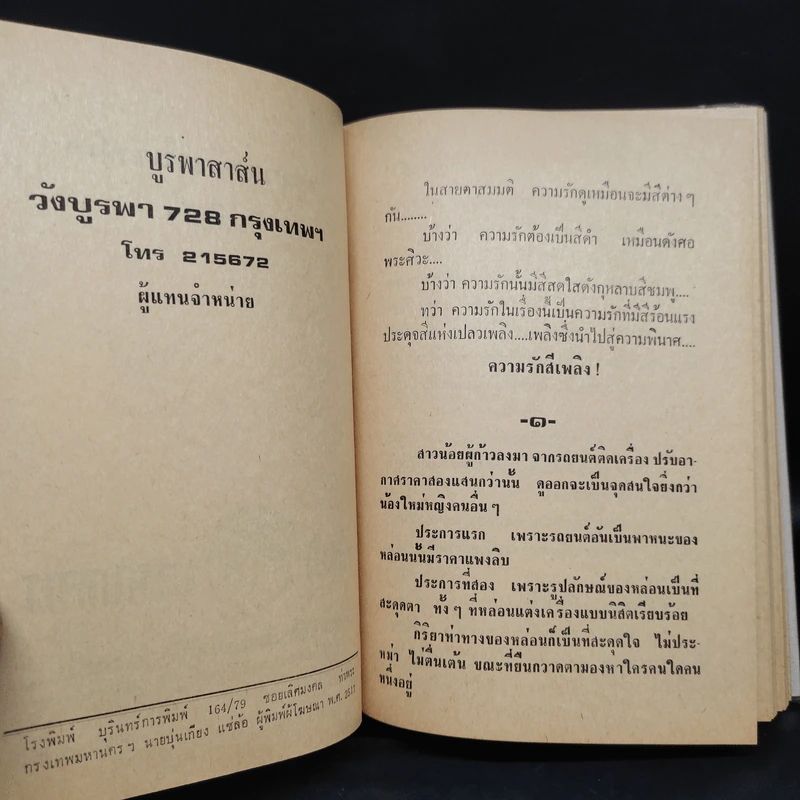 บูรพาสาส์น
วังบูรพา 728 กรุงเทพฯ
โทร 215672
ผู้แทนจำหน่าย
โรงพิมพ์ บุรินทร์การพิมพ์ 164/79 ซอยเลิศมงคล ท่าพระ
กรุงเทพมหานคร ฯ นายบุ่นเกียง แซ่ล้อ ผู้พิมพ์ผู้โฆษณา พ.ศ.
ในสายตาสมมติ ความรักดูเหมือนจะมีสีต่าง ๆ
กัน........
บ้างว่า ความรักต้องเป็นสีดำ เหมือนดังศอ
พระศิวะ....
บ้างว่า ความรักนั้นมีสีสดใสดังกุหลาบสีชมพู....
ทว่า ความรักในเรื่องนี้เป็นความรักที่มีสีร้อนแรง
ประดุจสีแห่งเปลวเพลิง....เพลิงซึ่งนำไปสู่ความพินาศ....
ความรักสีเพลิง !
-๑-
สาวน้อยผู้ก้าวลงมา จากรถยนต์ติดเครื่อง ปรับอา-
กาศราคาสองแสนกว่านั้น ดูออกจะเป็นจุดสนใจยิ่งกว่า
น้องใหม่หญิงคนอื่น ๆ
ประการแรก เพราะรถยนต์อันเป็นพาหนะของ
หล่อนนั้นมีราคาแพงลิบ
ประการที่สอง เพราะรูปลักษณ์ของหล่อนเป็นที่
สะดุดตา ทั้ง ๆ ที่หล่อนแต่งเครื่องแบบนิสิตเรียบร้อย
กิริยาท่าทางของหล่อนก็เป็นที่สะดุดใจ ไม่ประ-
หม่า ไม่ตื่นเต้น ขณะที่ยืนกวาดตามองหาใครคนใดคน
หนึ่งอยู่